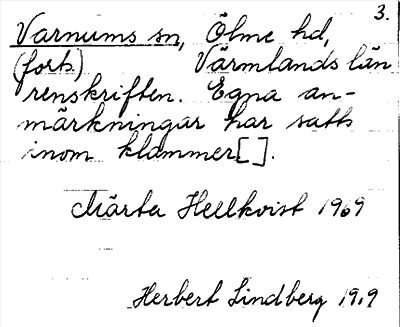 3.
Varnums sn, Ölme hd,
(forts.) Värmlands län
renskriften. Egna an-
märkningar har satts
inom klammer[ ].
Märta Hellkvist 1969
Herbert Lindberg 19.9